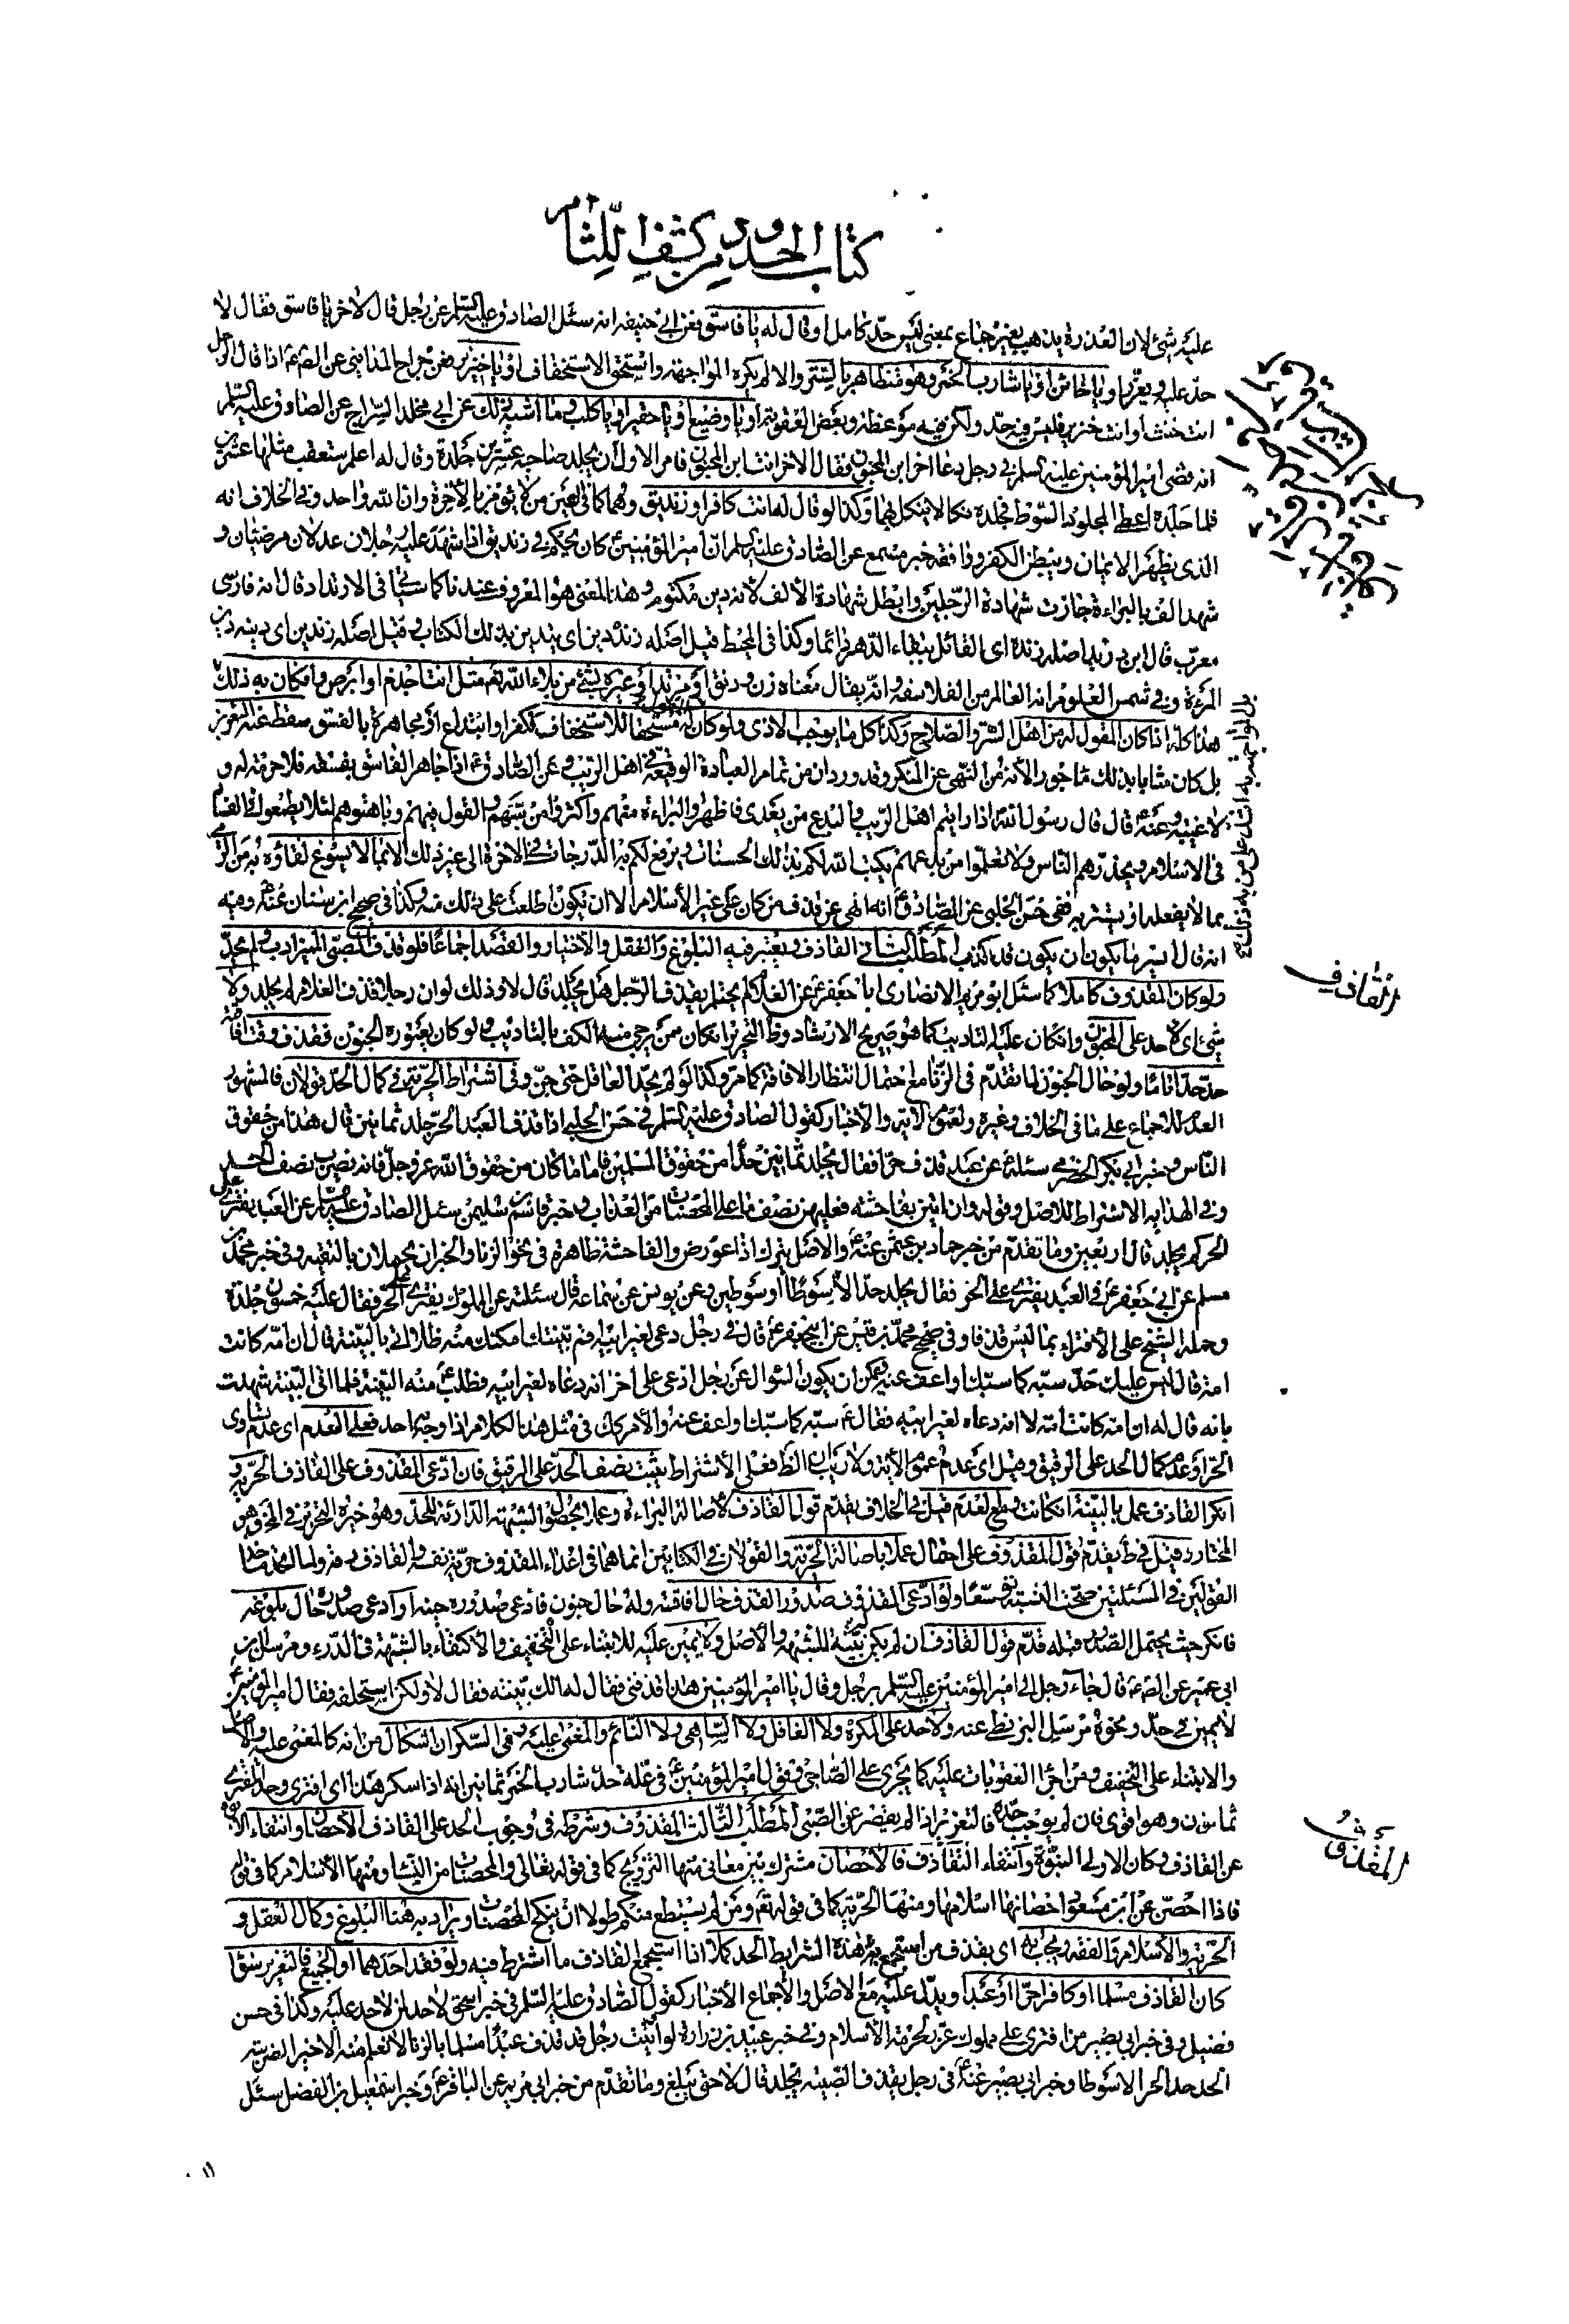 كتاب الحدود من كشف اللثام
عليه شئ لان العذرة يذهب بغير جماع بمعنى ليس حد كامل او قال له يا فاسق فعن ابي حنيفه انه سئل الصادق عليه السلم عن رجل قال لاخر يا فاسق فقال لا
حد عليه ويعزر او يا خائن او يا شارب الخمر وهو متظاهر بالستر والا لم يكره المواجهة واستحق الاستخفاف او يا خنزير فعن جراح المدايني عن الصادق ع اذا قال الرجل
انت خنث او انت خنزير فليس فيه حد ولكن فيه موعظة وبعض العقوبة او يا وضيع او يا حقير او يا كلب وما اشبه ذلك عن ابي مخلد السراج عن الصادق عليه السلم
انه قضى امير المؤمنين عليه السلم في رجل دعا اخر ابن المجنون فقال الاخر انت ابن المجنون فامر الاول ان يجلد صاحبه عشرين جلدة وقال له اعلم ستعقب مثلها عشرين
فلما جلده اعطى المجلود السوط فجلده نكالا لينكل بهما وكذا لو قال له انت كافر او زنديق وهما كما في العين من لا يؤمن بالاخرة وان الله واحد وفي الخلاف انه
الذي يظهر الايمان ويبطن الكفر ووافقه خبر مسمع عن الصادق عليه السلم ان امير المؤمنين ع كان يحكم في زنديق اذا شهد عليه رجلان عدلان مرضيان و
شهد الف بالبراءة جازت شهادة الرجلين وابطل شهادة الالف لانه دين مكتوم وهذا المعنى هو المعروف عندنا كما سيأتي في الارتداد قال انه فارسى
معرب قال ابن دريد اصله زنده اى القائل ببقاء الدهر دائما وكذا في المحيط قيل اصله زند دين اى يتدين بذلك الكتاب وقيل اصله زن دين اى دينه دين
المرءة وفي شمس العلوم انه العالم من الفلاسفه وانه يقال معناه زن ودنق او غيره بشئ من بلاء الله تعم مثل انت اجذم او ابرص وان كان به ذلك
هذا كله اذا كان المقول له من اهل الستر والصلاح وكذا كل ما يوجب الاذى ولو كان المقول له مستحقا للاستخفاف لكفر او ابتداع او مجاهرة بالفسق سقط عنه التعزير
بل كان مثابا بذلك مأجورا لانه من النهى عن المنكر وقد ورد ان من تمام العبادة الوقيعة في اهل الريب وعن الصادق ع اذا جاهر الفاسق بفسقه فلا حرمة له و
لا غيبة وعنه ع قال قال رسول الله اذا رايتم اهل الريب والبدع من بعدى فاظهروا البراءة منهم واكثروا من سبهم والقول فيهم وباهتوهم لئلا يطمعوا في الفساد
في الاسلام ويحذرهم الناس ولا تعلموا من بدعهم يكتب الله لكم بذلك الحسنات ويرفع لكم به الدرجات في الاخرة الى غير ذلك الا بما لا يسوغ لقاؤه به من الرمى
بما لا يفعله او يستتر به ففى حسن الحلبى عن الصادق ع انه نهى عن قذف من كان على غير الاسلام الا ان يكون اطلعت على ذلك منه وكذا في صحيح ابن سنان عنه ع وفيه
انه قال ايسر ما يكون ان يكون قد كذب المطلب الثاني القاذف ويعتبر فيه البلوغ والعقل والاختيار والقصد اجماعا فلو قذف الصبى ادب ولم يحد
ولو كان المقذوف كاملا كما سئل ابو مريم الانصارى ابا جعفر ع عن الغلام لم يحتلم يقذف الرجل هل يجلد قال لا وذلك لو ان رجلا قذف الغلام لم يجلد ولا
شئ اى لا حد على المجنون وان كان عليه التاديب كما هو صريح الارشاد وظ التحرير ان كان ممن يرجى منه الكف بالتاديب ولو كان يعتوره الجنون فقذف وقت افاقته
حد حدا تاما ولو حال الجنون لما تقدم في الزنا مع احتمال انتظار الافاقة كما مر وكذا لو لم يحد العاقل حتى جن وفي اشتراط الحرية في كمال الحد قولان فالمشهور
العدم للاجماع على ما في الخلاف وغيره ولعموم الاية والاخبار كقول الصادق عليه السلم في حسن الحلبي اذا قذف العبد الحر جلد ثمانين قال هذا من حقوق
الناس وخبر ابي بكر الحضرمى سئله ع عن عبد قذف حرا فقال يجلد ثمانين هذا من حقوق المسلمين فاما ما كان من حقوق الله عز وجل فانه يضرب نصف الحد
وفي الهدايه الاشتراط للاصل وقوله وان اتين بفاحشة فعليهن نصف ما على المحصنات من العذاب وخبر قاسم بن سليمن سئل الصادق عليه السلم عن العبد يفترى على
الحر كم يجلد قال اربعين وما تقدم من خبر حماد بن عثمن عنه ع والاصل يترك اذا عورض والفاحشة ظاهرة في نحو الزنا والخبران يحملان بالتقيه وفي خبر محمد بن
مسلم عن ابي جعفر ع في العبد يفترى على الحر فقال يجلد حدا الا سوطا او سوطين وعن يونس عن سماعة قال سئلته عن المملوك يفترى على الحر فقال عليه خمسون جلدة
وحمله الشيخ على الافتراء بما ليس قذفا وفي صحيح محمد بن قيس عن ابي جعفر ع قال في رجل دعى لغير ابيه اقم بينتك امكنك منه فلما اتى بالبينة قال ان امه كانت
امة قال ليس عليك حد سبه كما سبك او اعف عنه ويمكن ان يكون السؤال عن رجل ادعى على اخر انه دعاه لغير ابيه فطلب ع منه البينة فلما اتى البينة شهدت
بانه قال له ان امه كانت امة لا انه دعاه لغير ابيه فقال ع سبه كما سبك او اعف عنه والامر كك في مثل هذا الكلام اذا وجه به احد فعلى العدم اى عدم تساوى
الحر وعدم كمال الحد على الرقيق وقيل اى عدم عموم الاية ولا ريب ان الظ فعلى الاشتراط يثبت نصف الحد على الرقيق فان ادعى المقذوف على القاذف الحرية و
انكر القاذف عمل بالبينة ان كانت ومع العدم قيل في الخلاف يقدم قول القاذف لاصالة البراءة وعملا بحصول الشبهة الدارئة للحد وهو خيرة التحرير في الحر وهو
المختار وقيل في ط يقدم قول المقذوف على احتمال عملا باصالة الحرية والقولان في الكتابين انما هما في ادعاء المقذوف حرية نفسه والقاذف رقه
القولين في المسئلتين صحت النسبة توسعا ولو ادعى المقذوف صدور القذف حال افاقته وله حال جنون فادعى صدوره حينه او ادعى صدوره حال بلوغه
فانكر حيث يحتمل الصدور قبله قدم قول القاذف ان لم يكن بينة للشبهة والاصل ولا يمين عليه للابتناء على التخفيف والاكتفاء بالشبهة في الدرء ومرسل ابن
ابي عمير عن الصادق ع قال جاء رجل الى امير المؤمنين عليه السلم برجل وقال يا امير المؤمنين هذا قذفنى فقال له الك بينة فقال لا ولكن استحلفه فقال امير المؤمنين ع
لا يمين في حد ونحوه مرسل البزنطى عنه ولا حد على المكره ولا الغافل ولا الساهى ولا النائم والمغمى عليه وفي السكران اشكال من انه كالمغمى عليه والاصل
والابتناء على التخفيف ومن اجراء العقوبات عليه كما يجرى على الصاحى وقول امير المؤمنين ع في علة حد شارب الخمر ثمانين انه اذا سكر هذى اى افترى وحد المفترى
ثمانون وهو اقوى فان لم يوجب حده فالتعزير اذا لم يقصر عن الصبى المطلب الثالث المقذوف وشرطه في وجوب الحد على القاذف الاحصان وانتفاء الابوة
عن القاذف وكان الاولى البنوة وانتفاء التقاذف فالاحصان مشترك بين معانى منها التزويج كما في قوله تعالى والمحصنات من النساء ومنها الاسلام كما في قوله
فاذا احصن عن ابن مسعود احصانها اسلامها ومنها الحرية كما في قوله تعم ومن لم يستطع منكم طولا ان ينكح المحصنات ويراد به هنا البلوغ وكمال العقل و
الحرية والاسلام والعفة ويجب به اى بقذف من استجمع هذه الشرايط الحد كملا اذا استجمع القاذف ما اشترط فيه ولو فقد احدهما او الجميع فالتعزير سواء
كان القاذف مسلما او كافرا حرا او عبدا ويدل عليه مع الاصل والاجماع الاخبار كقول الصادق عليه السلم في خبر اسحق لا حد لمن لا حد عليه وكذا في حسن
فضيل وفي خبر ابي بصير من افترى على مملوك عزر لحرمة الاسلام وفي خبر عبيد بن زرارة لو اتيت رجل قد قذف عبدا مسلما بالزنا لا نعلم منه الا خيرا لضربته
الحد حد الحر الا سوطا وخبر ابي بصير عنه ع في رجل يقذف الصبية يجلد قال لا حتى تبلغ وما تقدم من خبر ابي مريم عن الباقر ع وخبر اسمعيل بن الفضل سئل
القاذف
المقذوف
١١